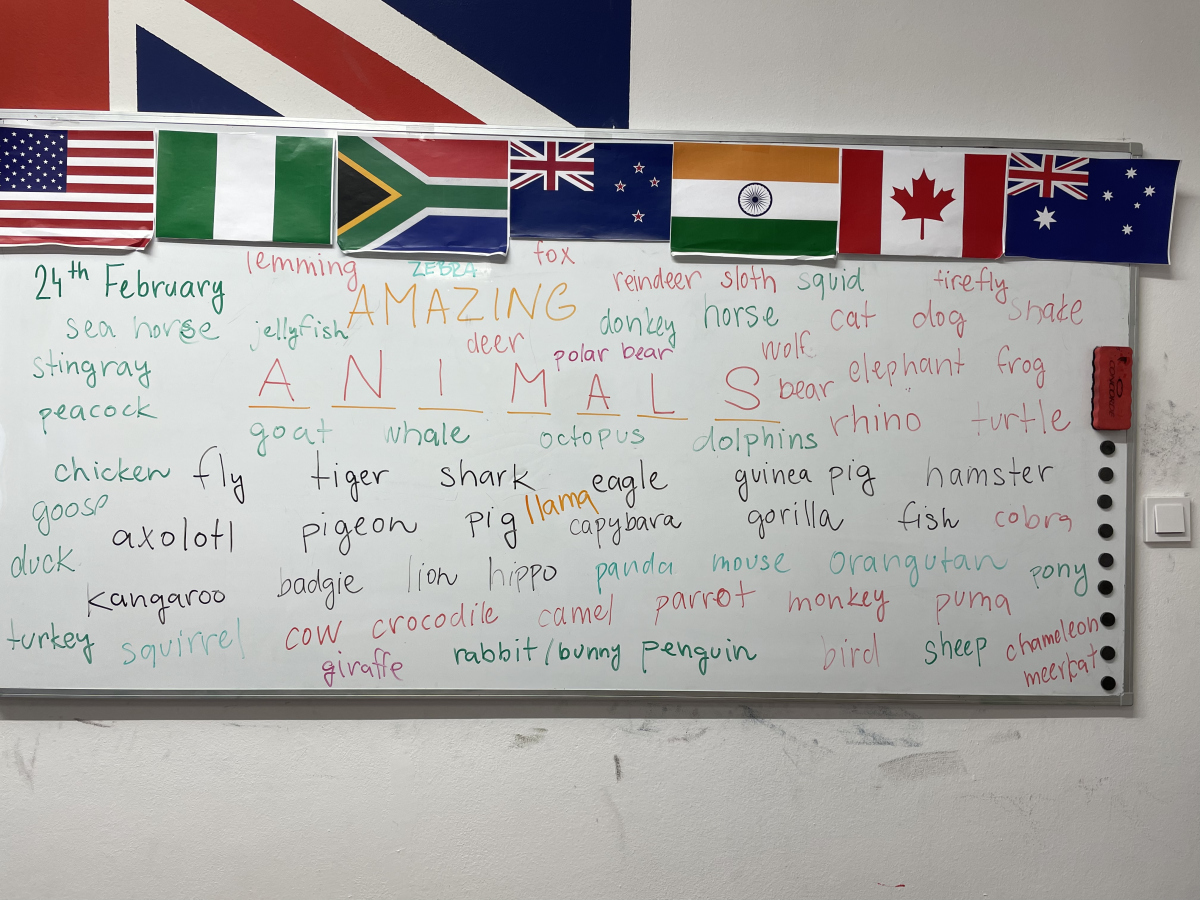 24th February lemming ZEBRA fox reindeer sloth squid firefly
sea horse jellyfish AMAZING donkey horse cat dog snake
stingray deer polar bear wolf elephant frog
peacock A N I M A L S bear rhino turtle
goat whale octopus dolphins
chicken fly tiger shark eagle guinea pig hamster
goose axolotl pigeon pig llama capybara gorilla fish cobra
duck badgie lion hippo panda mouse orangutan pony
kangaroo cow crocodile camel parrot monkey puma
turkey squirrel giraffe rabbit/bunny penguin bird sheep chameleon
meerkat